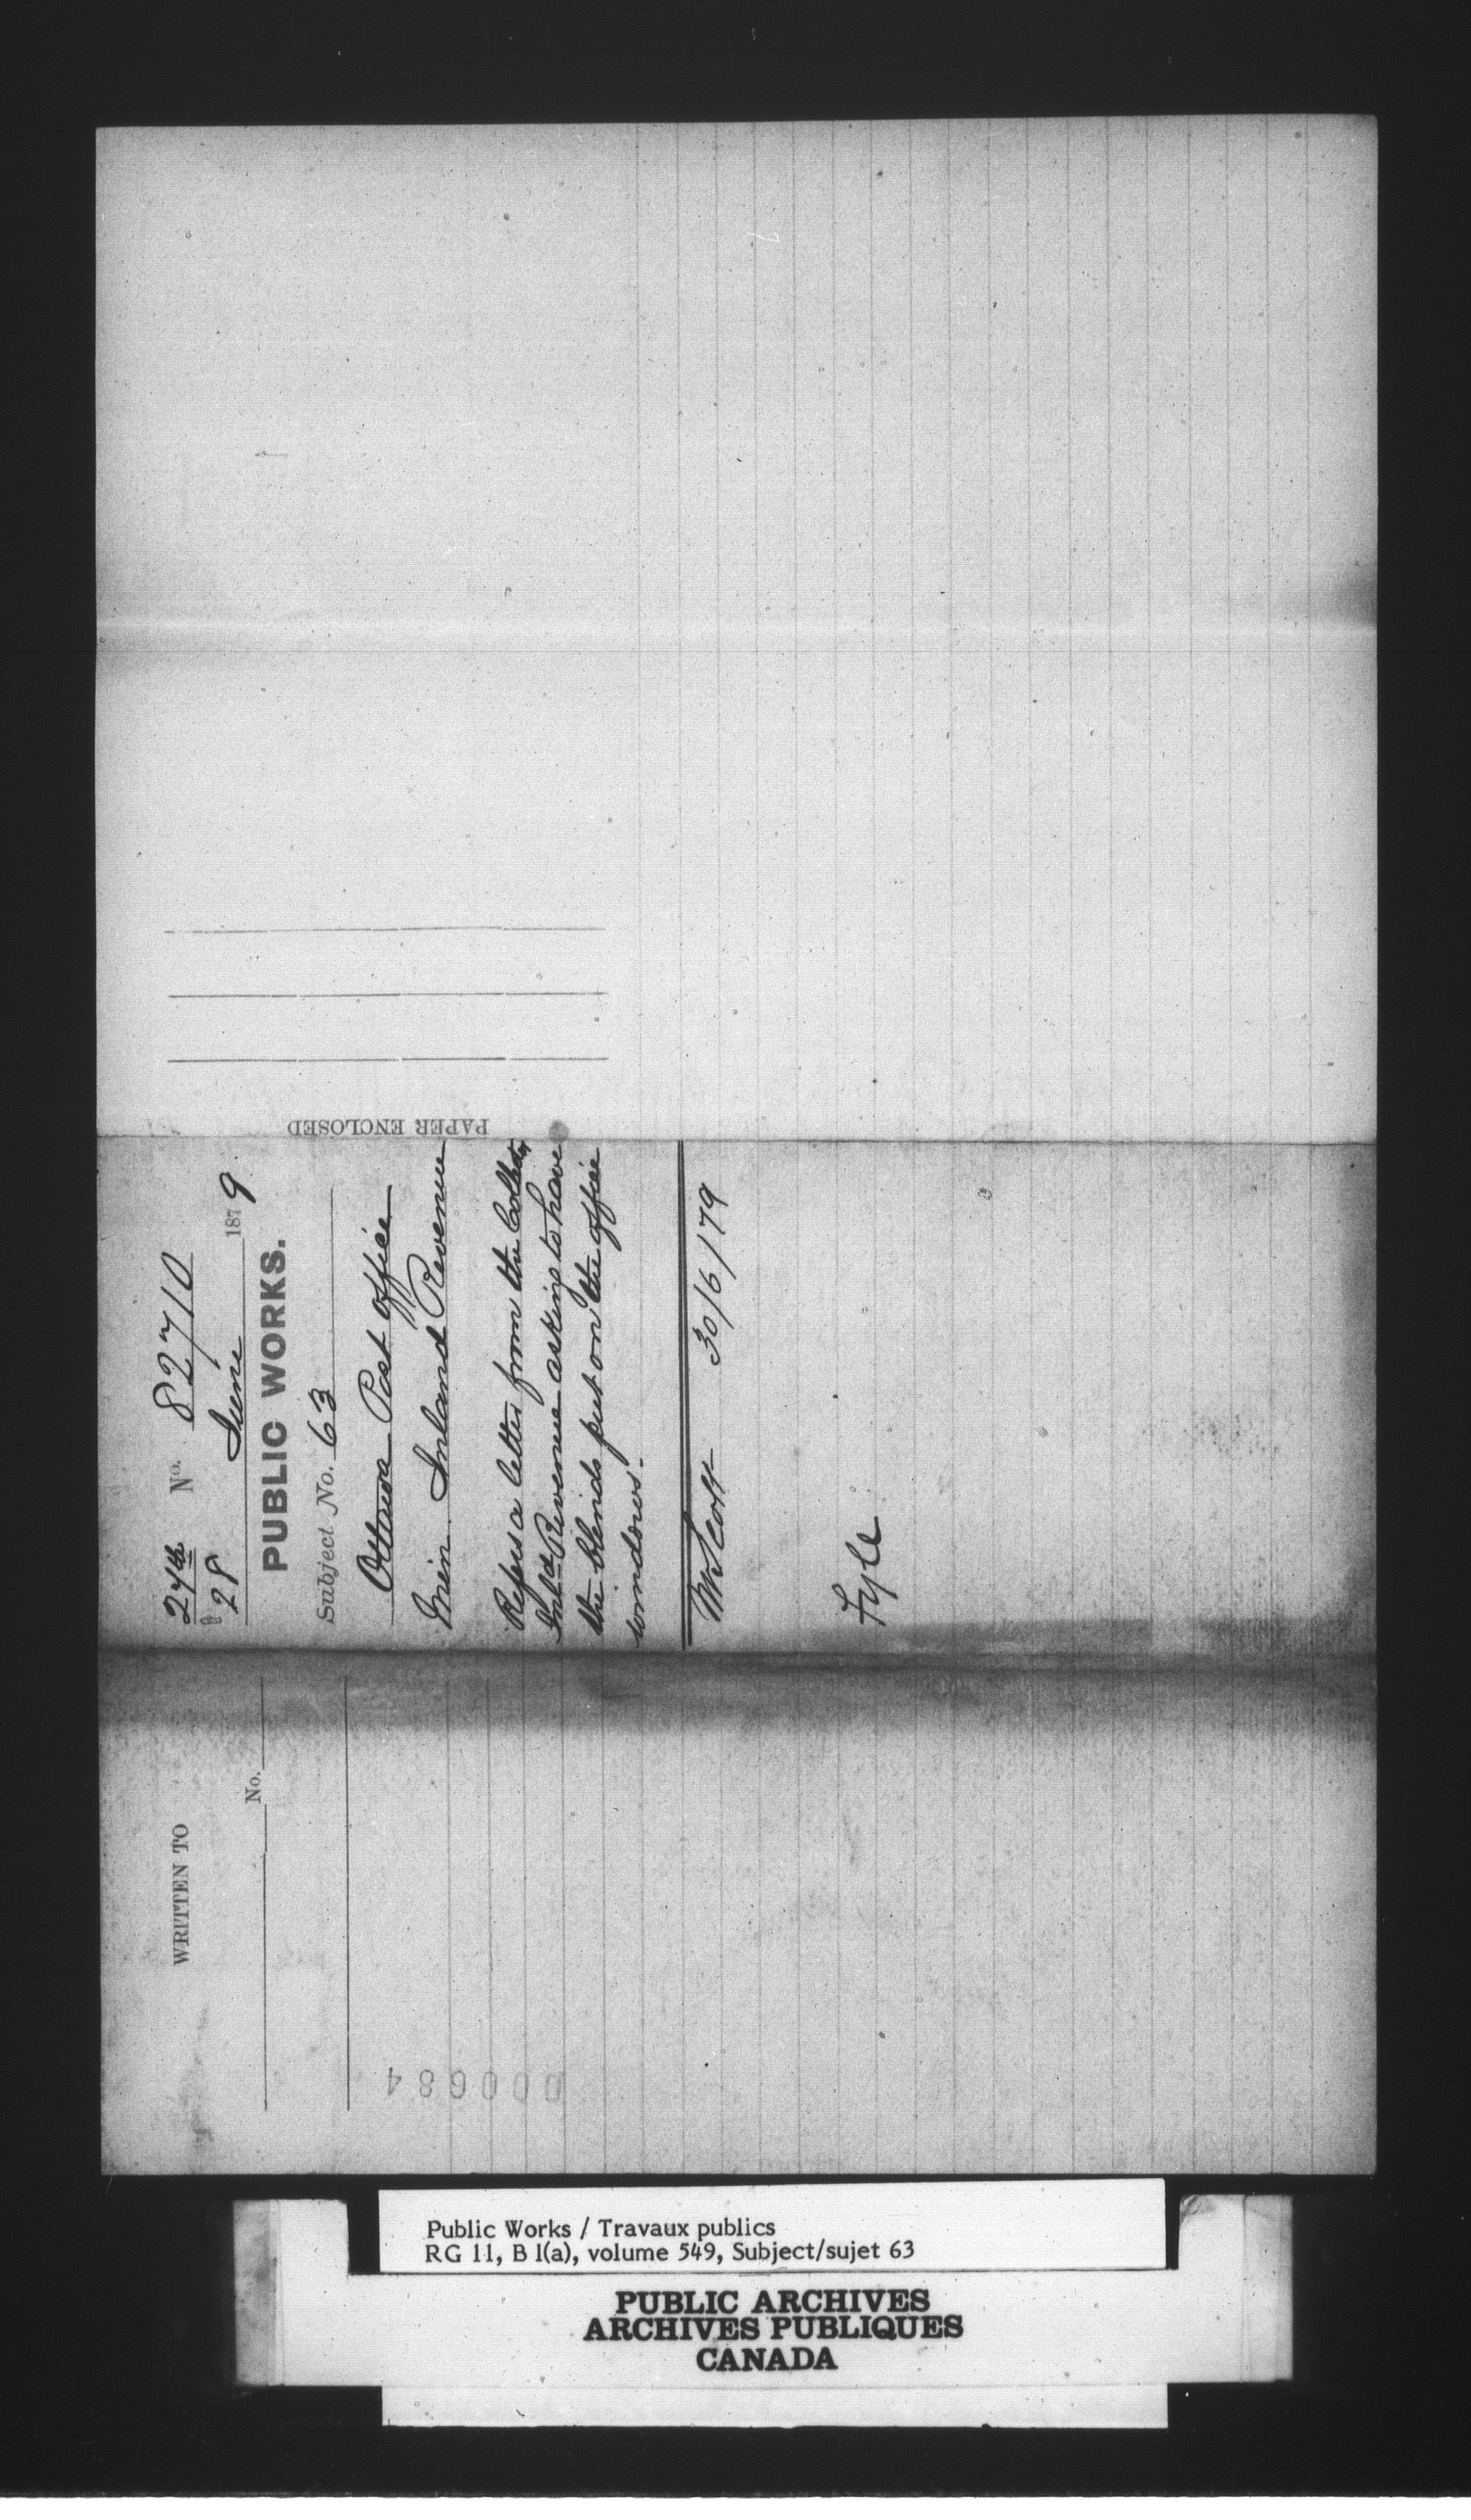 27th No. 82710
28 June 1879
PUBLIC WORKS.
Subject No. 63
Ottawa Post Office
Min. Inland Revenue
Refers a letter from the Collector
Inld Revenue asking to have
the blinds put on the office
windows.
Mr Scott 30/6/79
Fyle
PAPER ENCLOSED
WRITTEN TO
No.
000684
Public Works / Travaux publics
RG 11, B 1(a), volume 549, Subject/sujet 63
PUBLIC ARCHIVES
ARCHIVES PUBLIQUES
CANADA